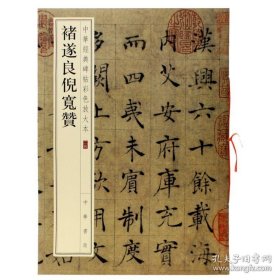 漢興六十餘載海
内艾安府庫充實
而四夷未賓制度
中華經典碑帖彩色放大本
褚遂良倪寬贊
中華書局
孔夫子旧书网